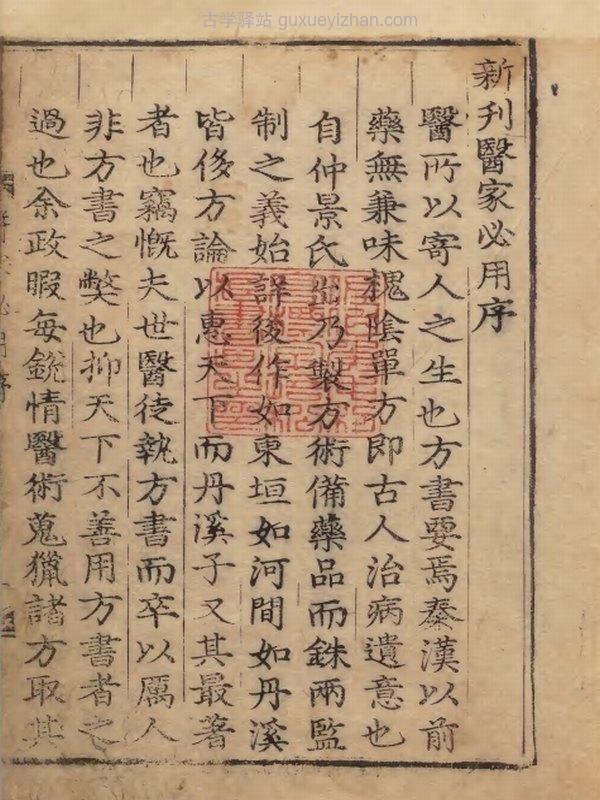 古学驿站 guxueyizhan.com
新刋醫家必用序
醫所以寄人之生也方書要焉秦漢以前
藥無兼味槐陰單方即古人治病遺意也
自仲景氏出乃製方術備藥品而銖兩監
制之義始詳後作如東垣如河間如丹溪
皆後方論以惠天下而丹溪子又其最著
者也竊慨夫世醫徒執方書而卒以厲人
非方書之獘也抑天下不善用方書者之
過也余政暇每銳情醫術蒐獵諸方取其